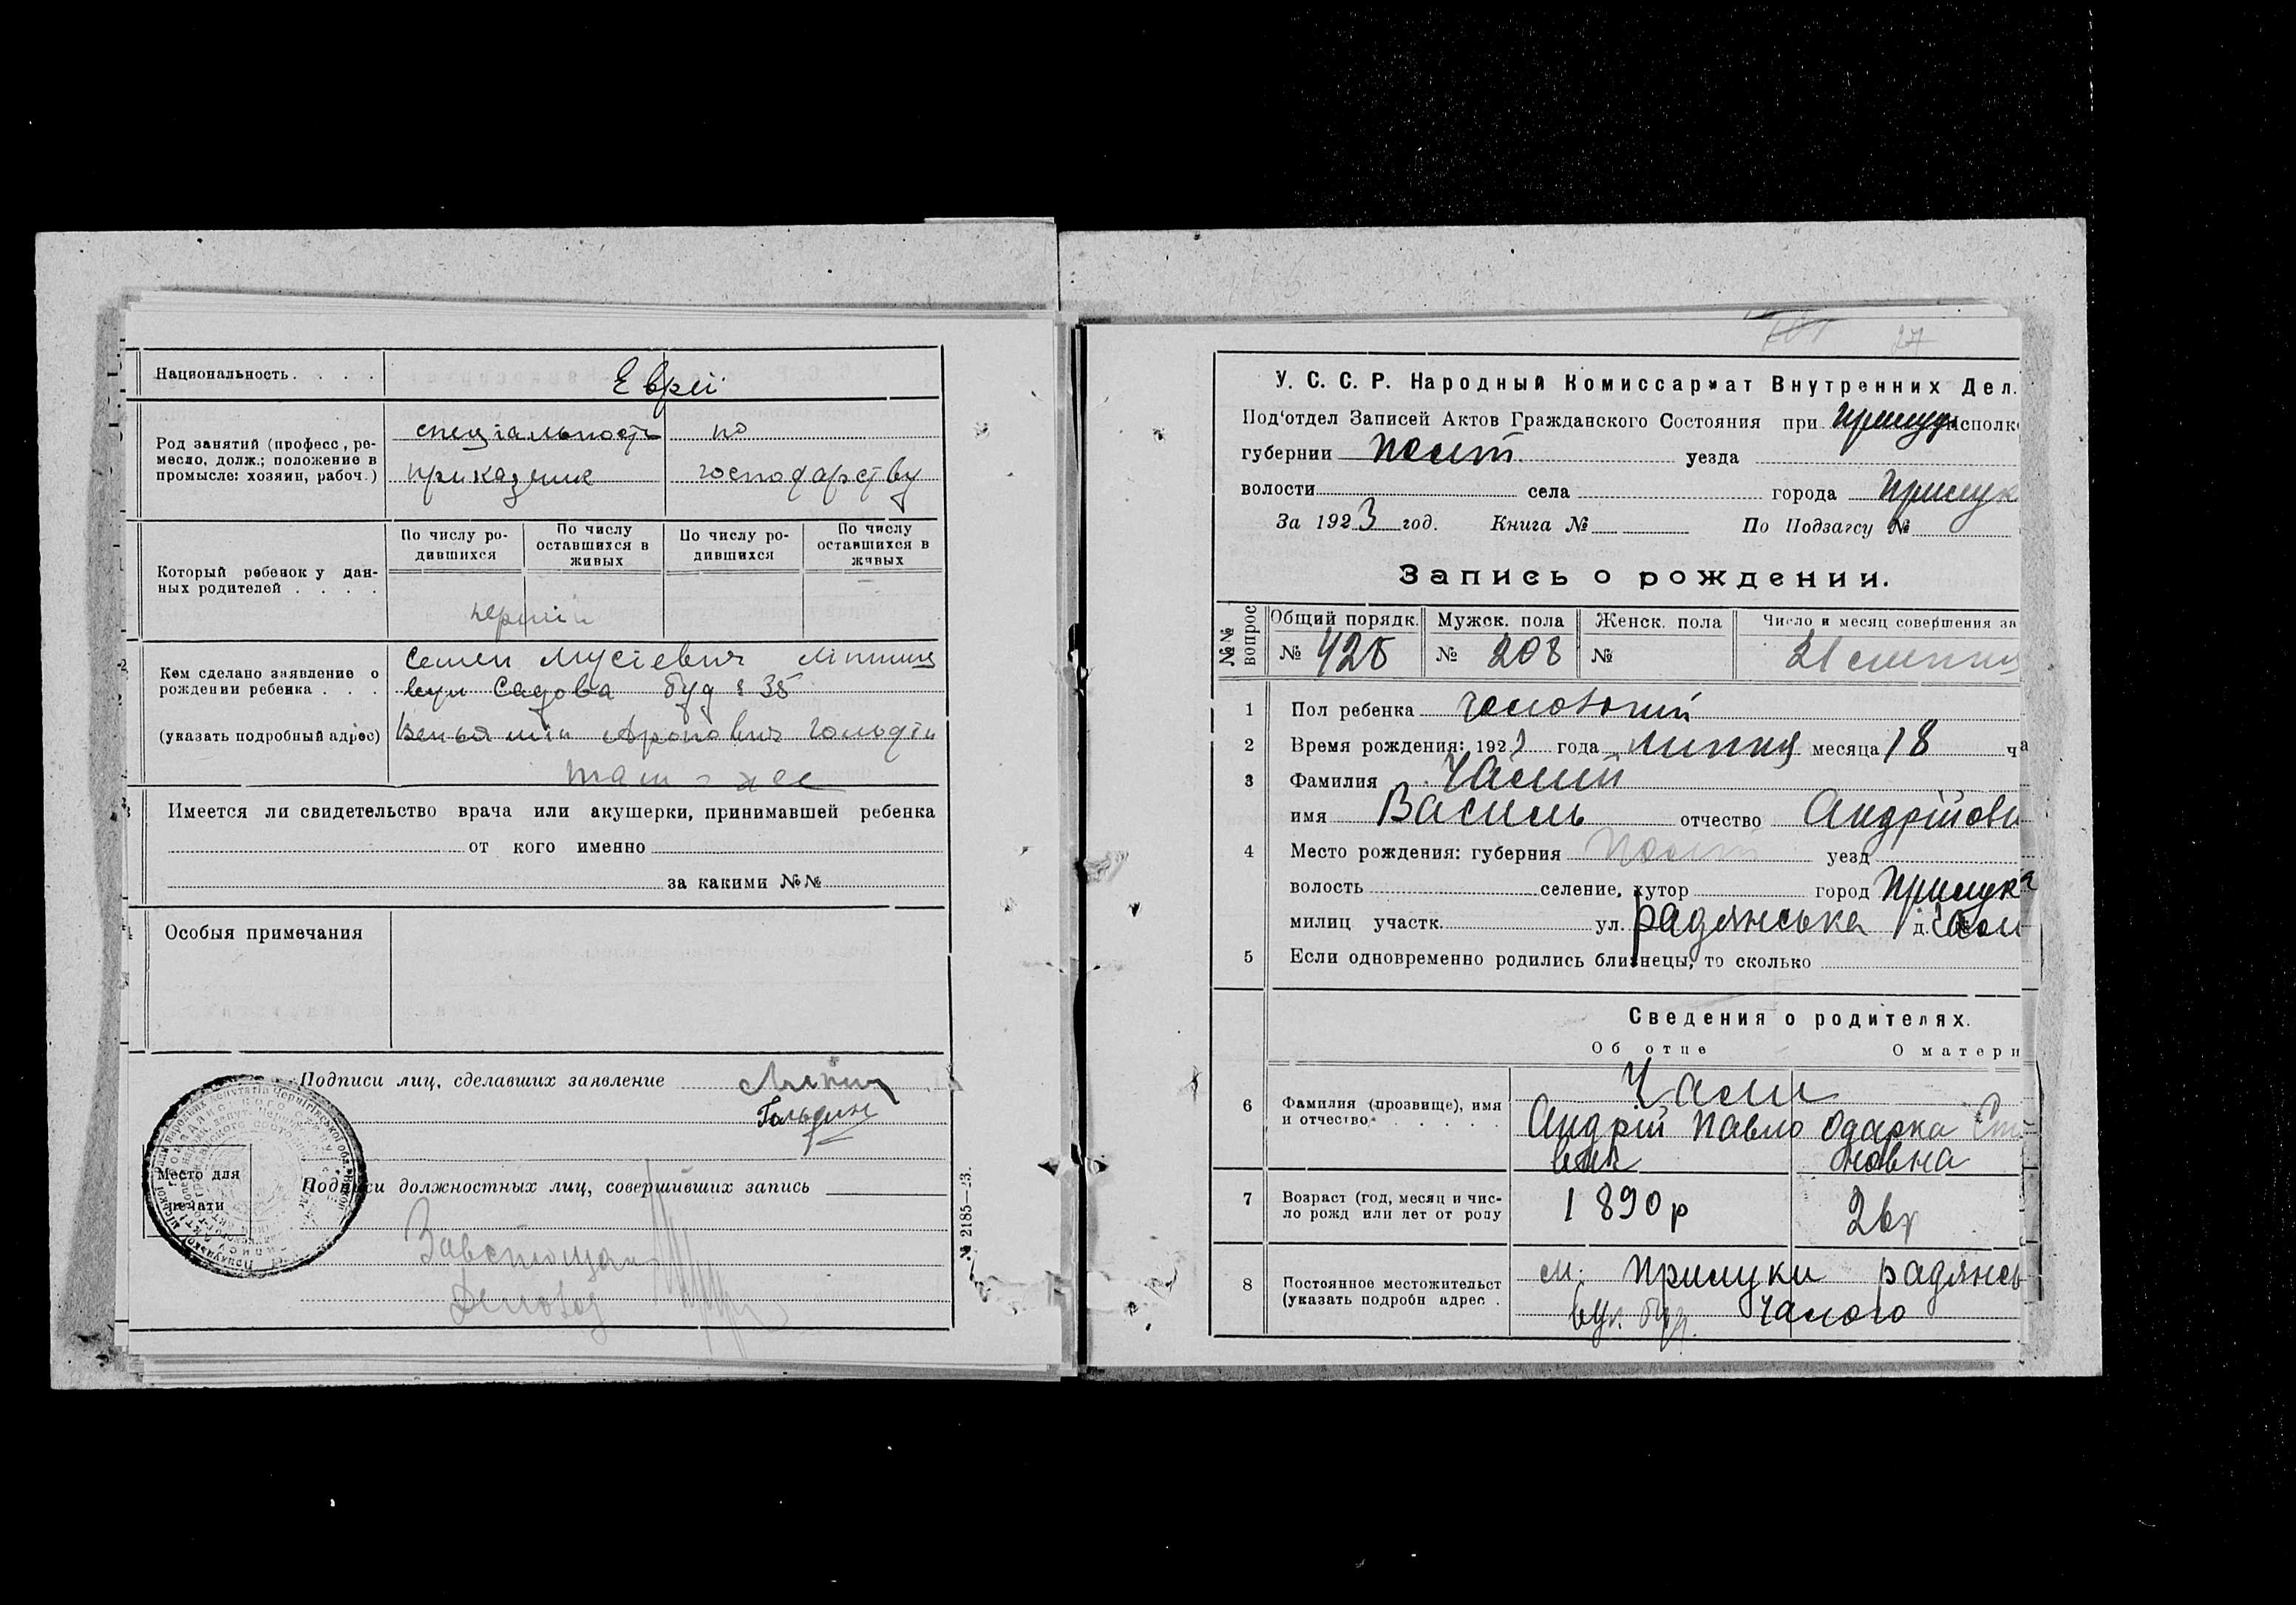 Национальность . . . .
Еврєї
Род занятий (професс, ре-
месло, долж.; положение в
промысле: хозяин, рабоч.)
спеціальность по
приказчик господарству
Который ребенок у дан-
ных родителей . . . .
По числу ро-
дившихся
По числу
оставшихся в
живых
По числу ро-
дившихся
По числу
оставшихся в
живых
перший
Кем сделано заявление о
рождении ребенка . . .
(указать подробный адрес)
Семен Мусієвич
вул Садова буд 35
Веньямін Аронович Гольдін
там - же
Имеется ли свидетельство врача или акушерки, принимавшей ребенка
от кого именно
за какими №№
Особыя примечания
Подписи лиц, сделавших заявление
Гольдин
Место для
печати
Подписи должностных лиц, совершивших запись
Діловод
№ 2185—23.
27
У. С. С. Р. Народный Комиссариат Внутренних Дел.
Под'отдел Записей Актов Гражданского Состояния при исполк
губернии Полт. уезда
волости села города Прилук
За 1923 год. Книга № По Подзагсу №
Запись о рождении.
№№
вопрос
Общий порядк. Мужск. пола Женск. пола Число и месяц совершения за
№ 428 № 208 № 21 серпня
1 Пол ребенка чоловочий
2 Время рождения: 192 года липня месяца 18 ча
3 Фамилия Чалий
имя Василь отчество Андрійови
4 Место рождения: губерния Полт уезд
волость селение, хутор город Прилука
милиц участк. ул. радянська д.
5 Если одновременно родились близнецы, то сколько
Сведения о родителях.
Об отце О матери
6 Фамилия (прозвище), имя
и отчество . . . . .
Чали
Андрій Павло Одарка
вич новна
7 Возраст (год, месяц и чис-
ло рожд или лет от роду
1890р 26р
8 Постоянное местожительст
(указать подробн адрес .
м. Прилуки радянсь
вул. буд. Чалого